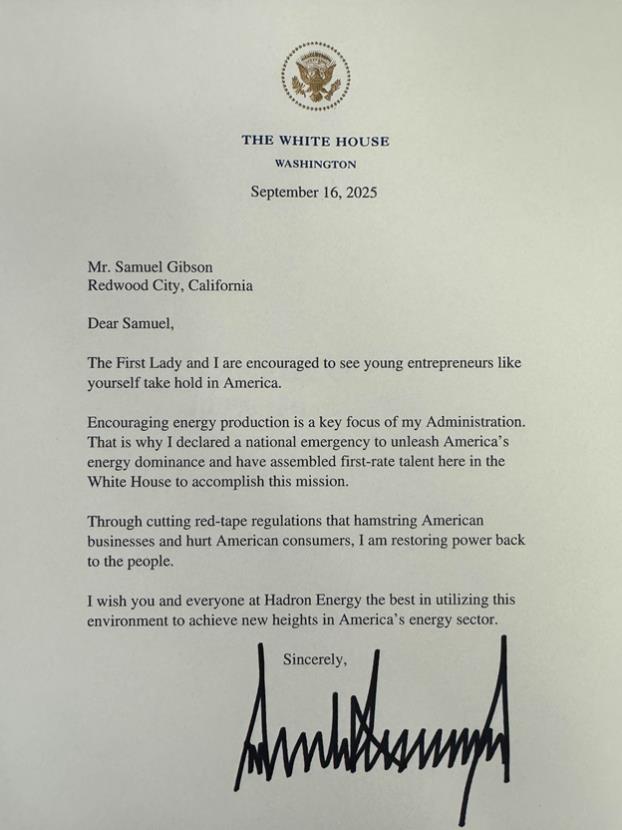 THE WHITE HOUSE
WASHINGTON
September 16, 2025
Mr. Samuel Gibson
Redwood City, California
Dear Samuel,
The First Lady and I are encouraged to see young entrepreneurs like
yourself take hold in America.
Encouraging energy production is a key focus of my Administration.
That is why I declared a national emergency to unleash America’s
energy dominance and have assembled first-rate talent here in the
White House to accomplish this mission.
Through cutting red-tape regulations that hamstring American
businesses and hurt American consumers, I am restoring power back
to the people.
I wish you and everyone at Hadron Energy the best in utilizing this
environment to achieve new heights in America’s energy sector.
Sincerely,